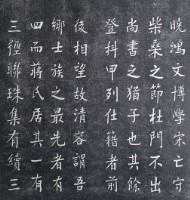 晚鴻文博學宋亡守
柴桑之節杜門不出
尚書之猶子也其餘
登科甲列仕籍者前
後相望故清容謂吾
鄉士族之最先者有
四而蔣氏居其一有
三徑聯珠集有續三